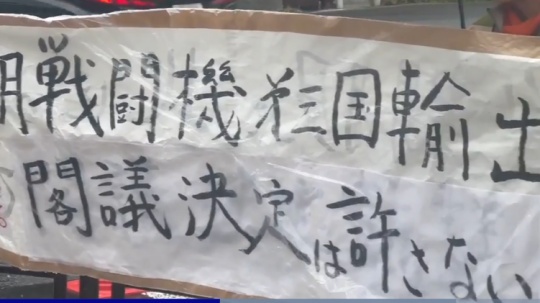 期戦闘機第三国輸出
閣議決定は許さない